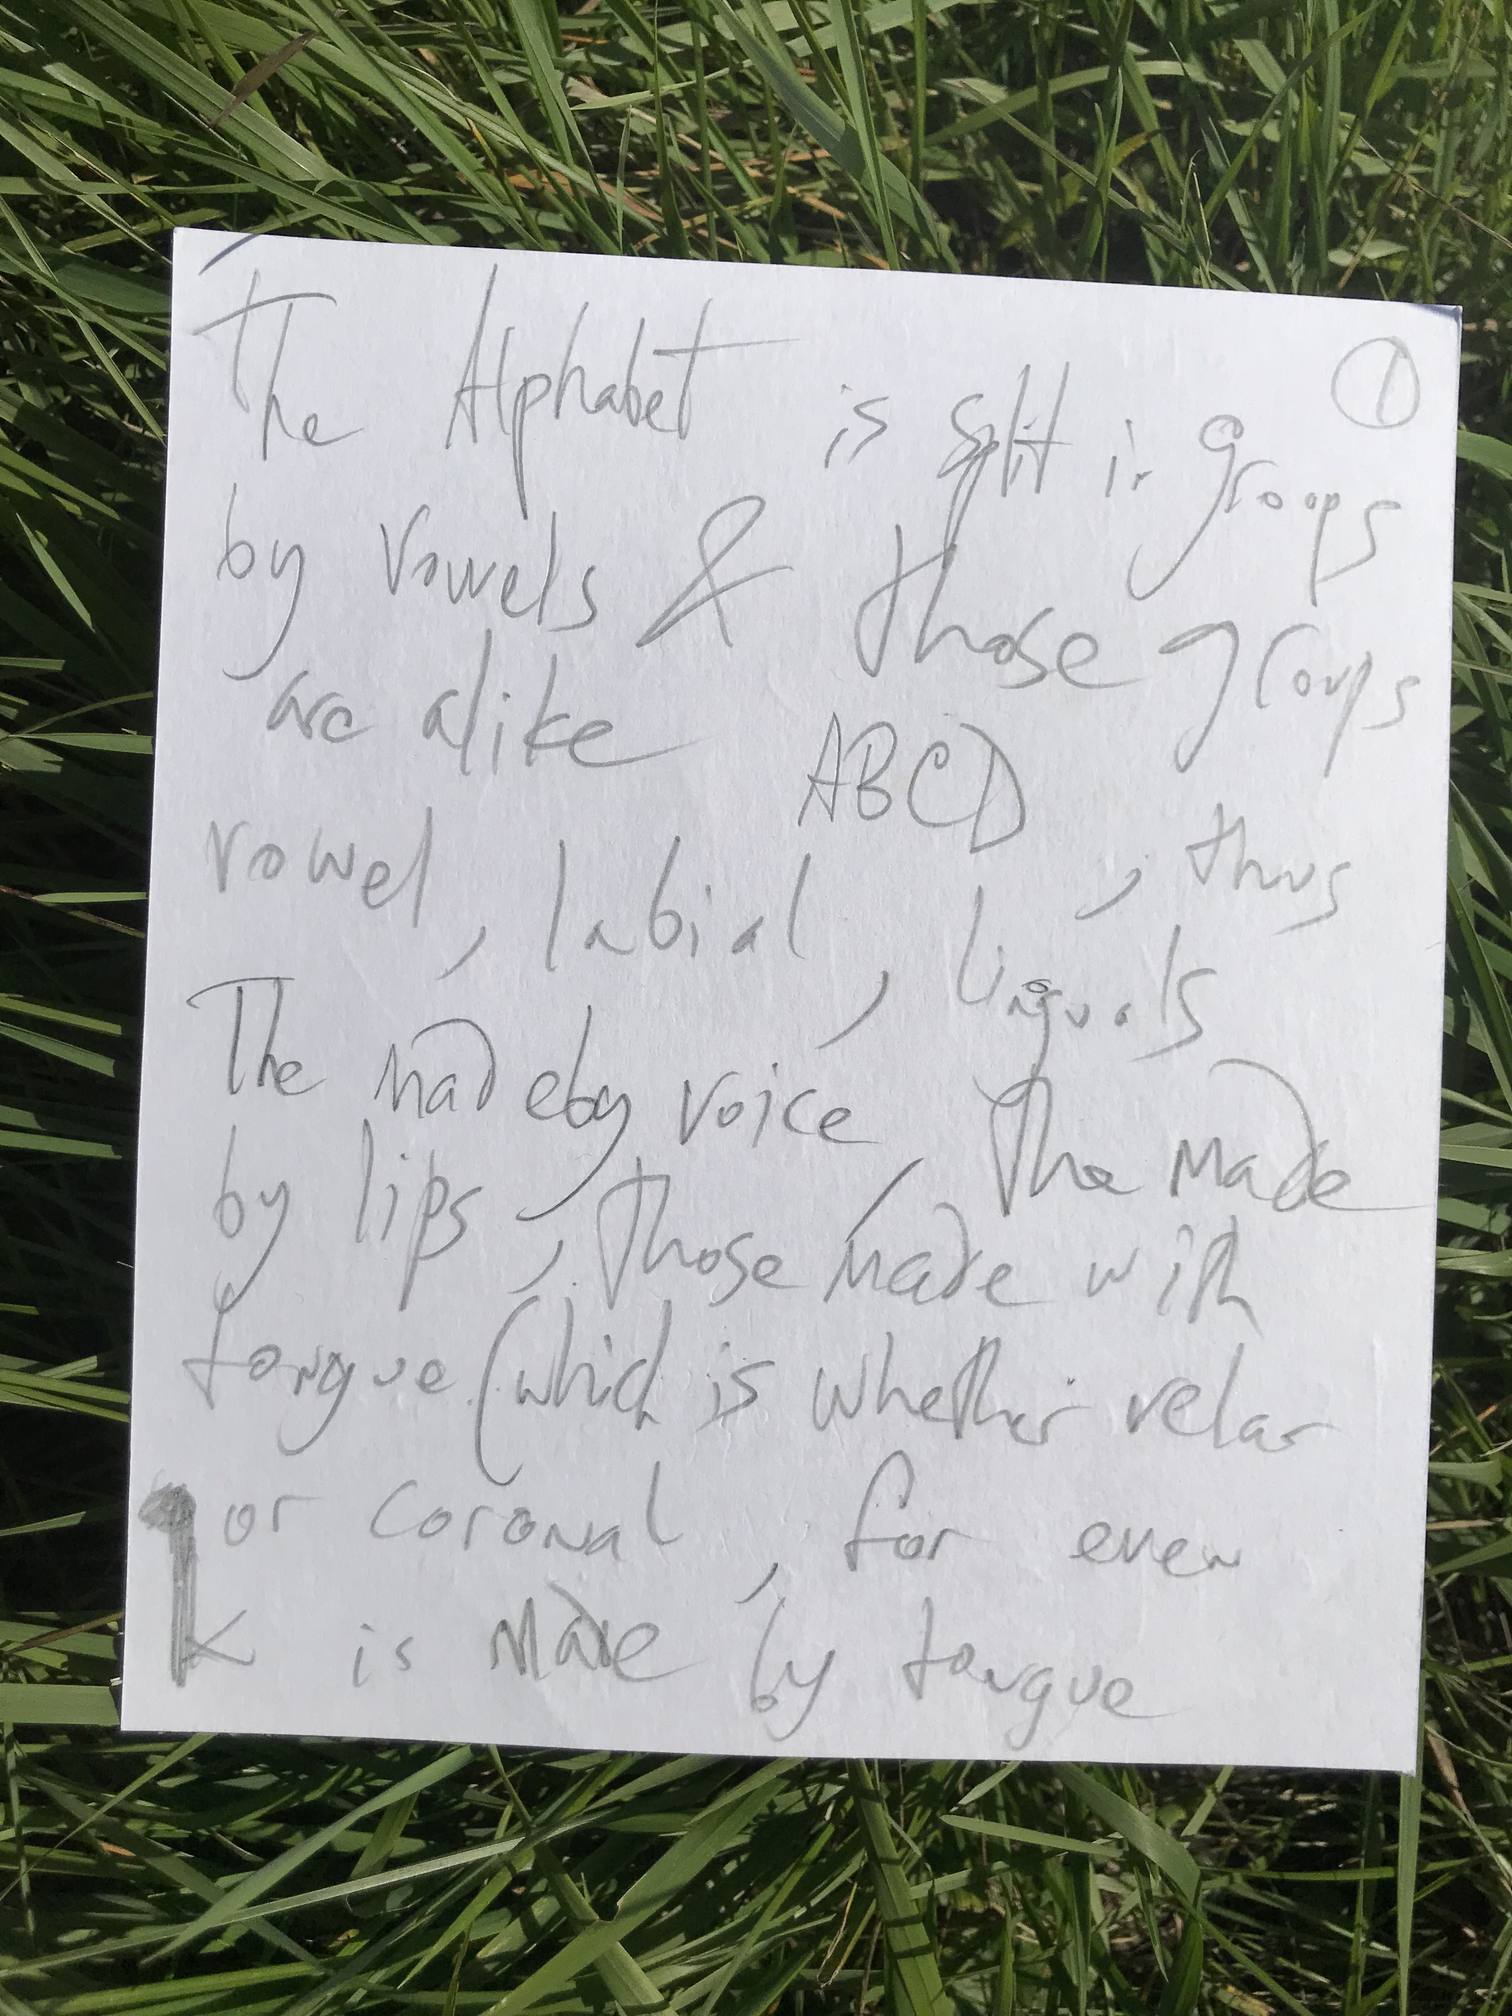 The Alphabet is split in groops ①
by vowels & those groups
are alike ABCD, thus
vowel, labial, linguals
The made by voice, The made
by lips, those made with
tongue (which is whether velar
or coronal, for even
K is made by tongue